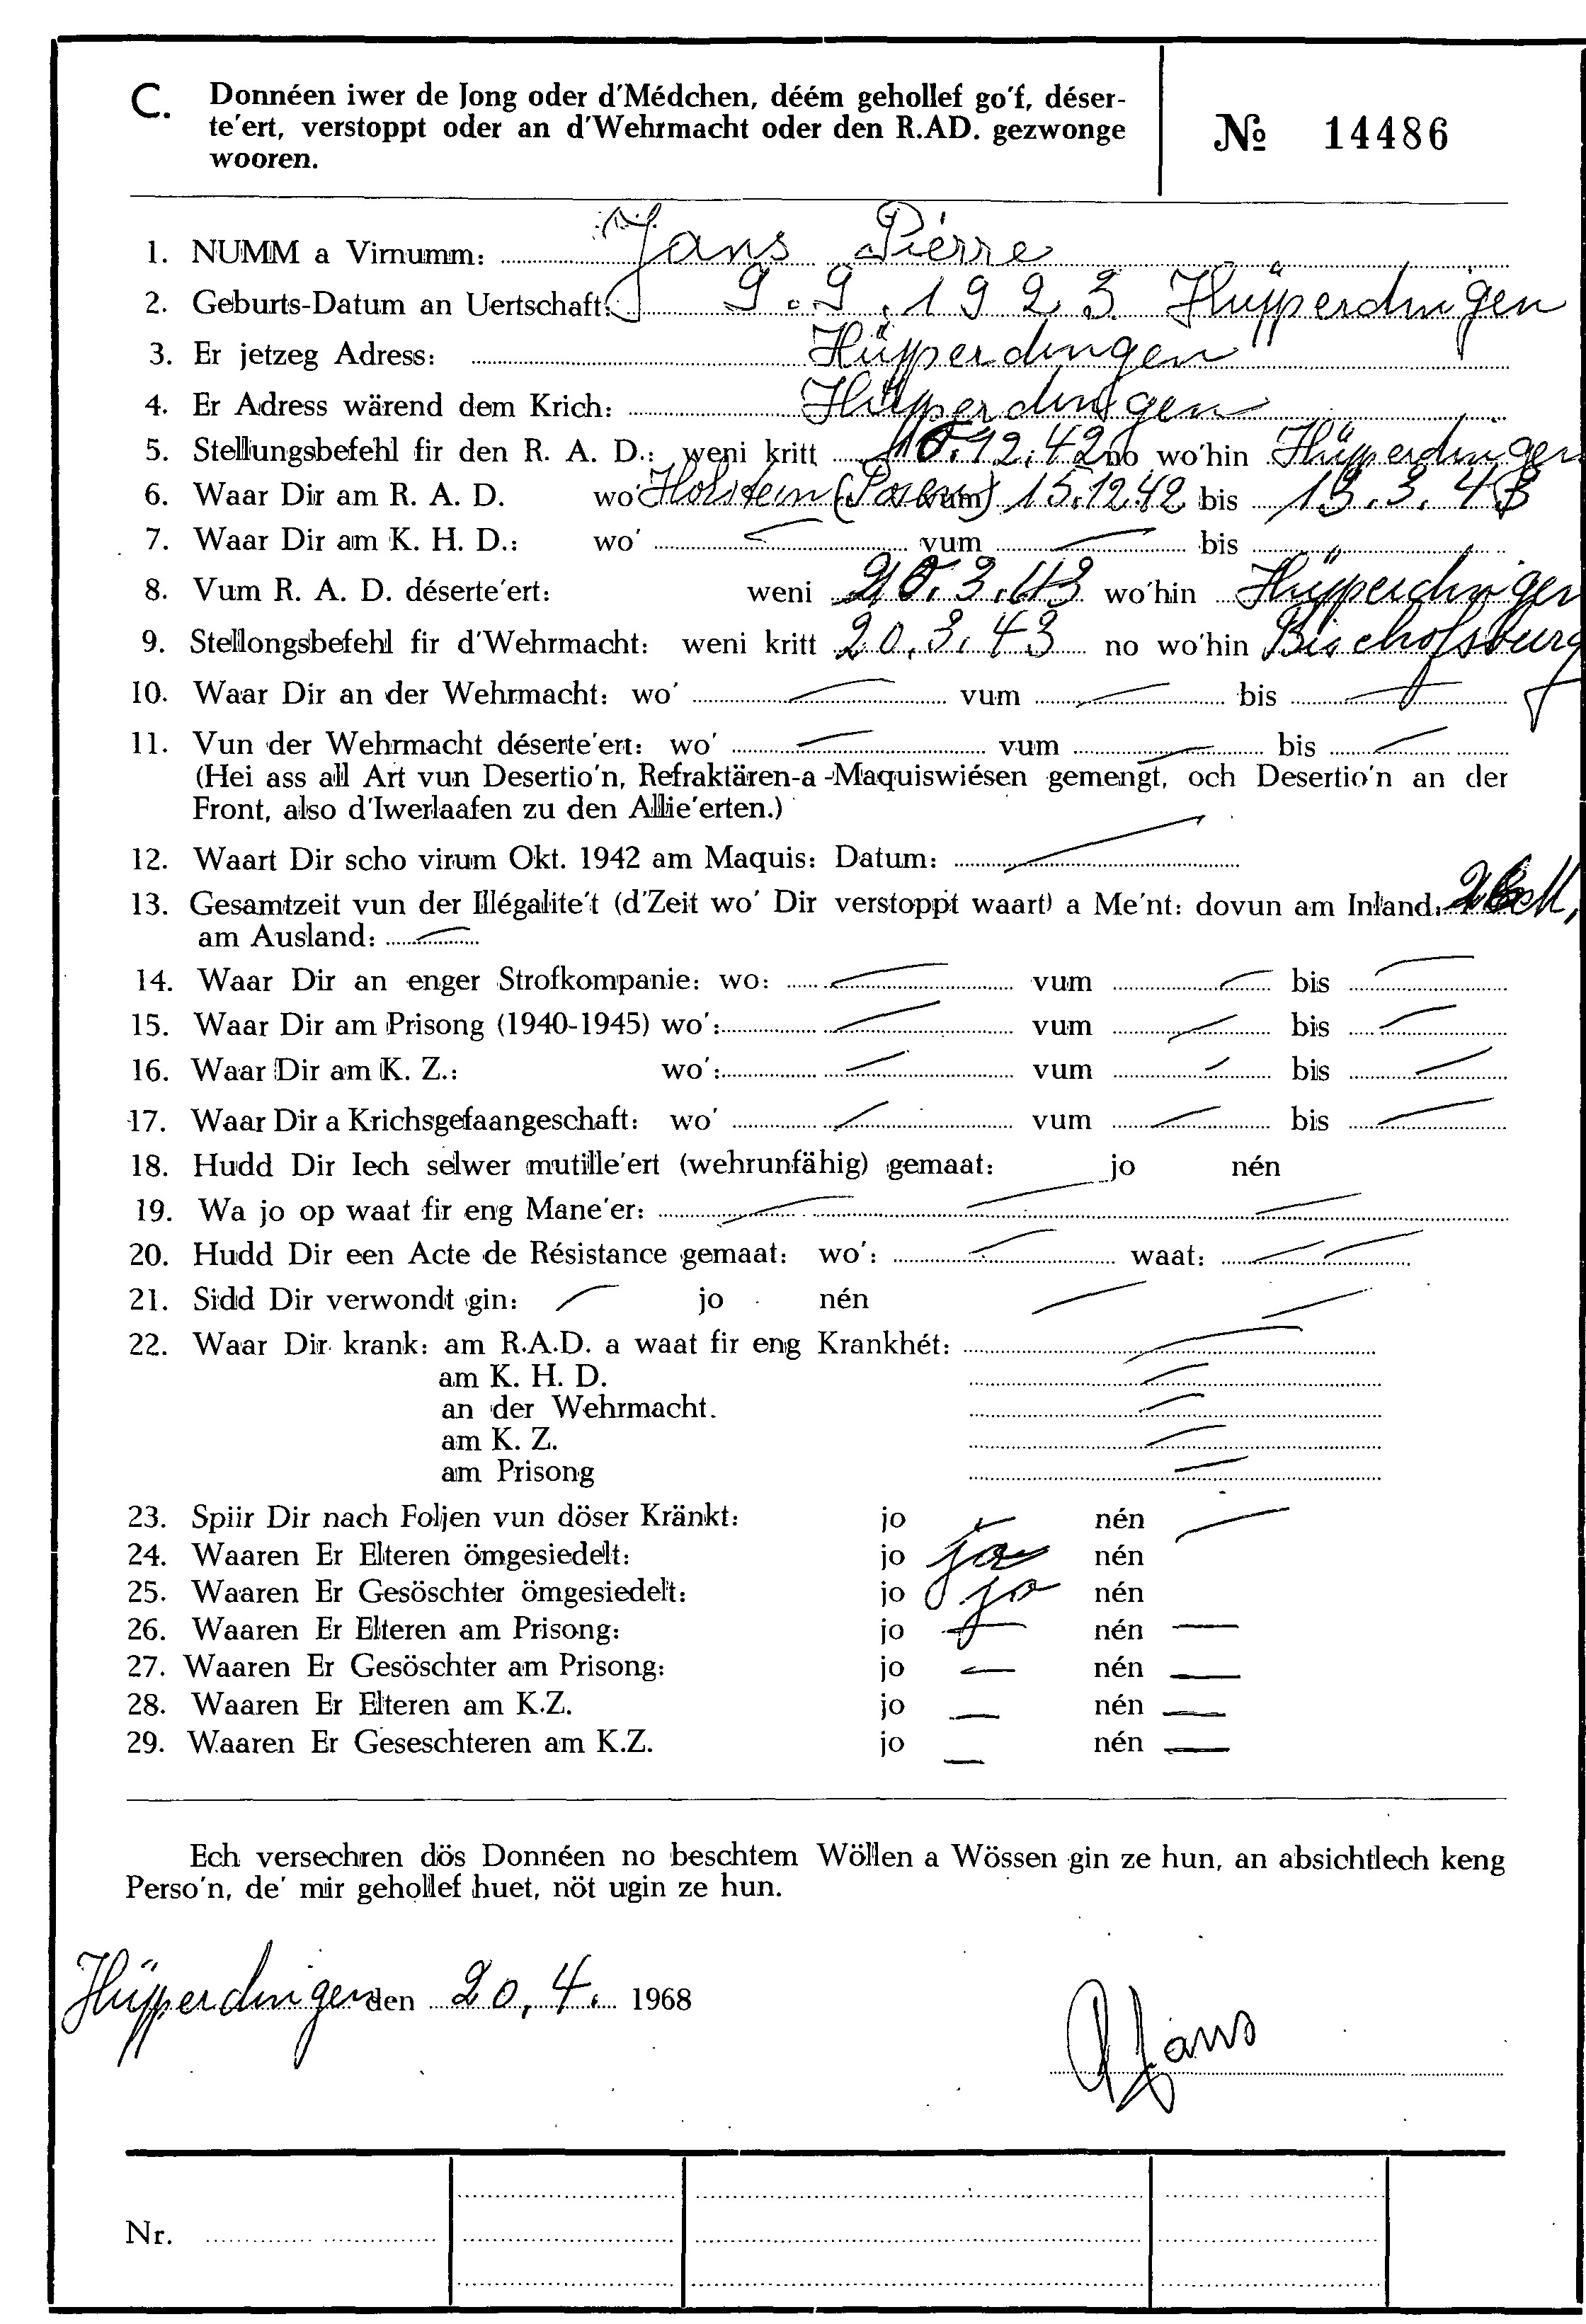 C. Donnéen iwer de Jong oder d'Médchen, déém gehollef go'f, déser-
te'ert, verstoppt oder an d'Wehrmacht oder den R.AD. gezwonge
wooren.
№ 14486
1. NUMM a Virnumm: Jans Pierre
2. Geburts-Datum an Uertschaft: 9.9.1923 Hüpperdingen
3. Er jetzeg Adress: Hüpperdingen
4. Er Adress wärend dem Krich: Hüpperdingen
5. Stellungsbefehl fir den R. A. D.: weni kritt 10.12.42 no wo'hin Hüpperdingen
6. Waar Dir am R. A. D. wo' Holstein (Posen) vum 15.12.42 bis 13.3.43
7. Waar Dir am K. H. D.: wo' vum bis
8. Vum R. A. D. déserte'ert: weni 20.3.43 wo'hin Hüpperdingen
9. Stellongsbefehl fir d'Wehrmacht: weni kritt 20.3.43 no wo'hin Bischofsburg
10. Waar Dir an der Wehrmacht: wo' vum bis
11. Vun der Wehrmacht déserte'ert: wo' vum bis
(Hei ass all Art vun Desertio'n, Refraktären-a -Maquiswiésen gemengt, och Desertio'n an der
Front, also d'Iwerlaafen zu den Allie'erten.)
12. Waart Dir scho virum Okt. 1942 am Maquis: Datum:
13. Gesamtzeit vun der Illégalite't (d'Zeit wo' Dir verstoppt waart) a Me'nt: dovun am Inland:
am Ausland:
14. Waar Dir an enger Strofkompanie: wo: vum bis
15. Waar Dir am Prisong (1940-1945) wo': vum bis
16. Waar Dir am K. Z.: wo': vum bis
17. Waar Dir a Krichsgefaangeschaft: wo' vum bis
18. Hudd Dir Iech selwer mutille'ert (wehrunfähig) gemaat: jo nén
19. Wa jo op waat fir eng Mane'er:
20. Hudd Dir een Acte de Résistance gemaat: wo': waat:
21. Sidd Dir verwondt gin: jo nén
22. Waar Dir krank: am R.A.D. a waat fir eng Krankhét:
am K. H. D.
an der Wehrmacht.
am K. Z.
am Prisong
23. Spiir Dir nach Foljen vun döser Kränkt: jo nén
24. Waaren Er Elteren ömgesiedelt: jo jo nén
25. Waaren Er Gesöschter ömgesiedelt: jo jo nén
26. Waaren Er Elteren am Prisong: jo nén
27. Waaren Er Gesöschter am Prisong: jo nén
28. Waaren Er Elteren am K.Z. jo nén
29. Waaren Er Geseschteren am K.Z. jo nén
Ech versechren dös Donnéen no beschtem Wöllen a Wössen gin ze hun, an absichtlech keng
Perso'n, de' mir gehollef huet, nöt ugin ze hun.
Hüpperdingen den 20.4. 1968
P Jans
Nr.